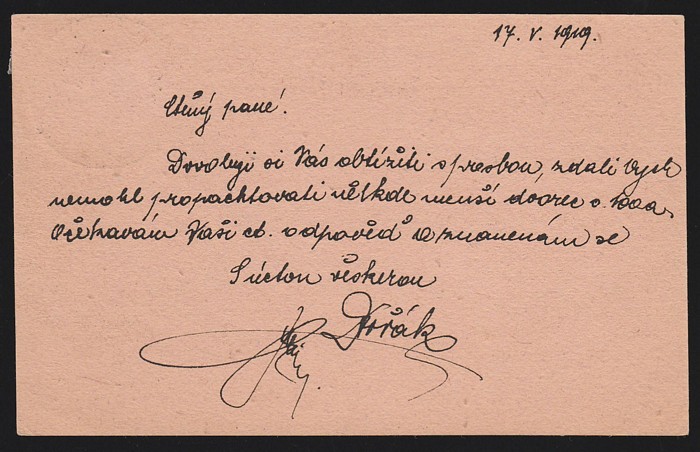 17. V. 1919.
Ctěný pane!
Dovoluji si Vás obtížiti s prosbou, zdali bych
nemohl propachtovati někde menší dvorec o
Očekávám Vaši ct. odpověď a znamenám se
S úctou veškerou
Dvořák